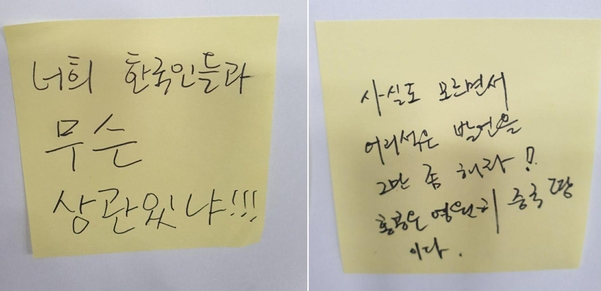 너희 한국인들과
무슨
상관있냐!!!
사실도 모르면서
어리석은 발언을
그만 좀 해라!
홍콩은 영원히 중국 땅
이다.